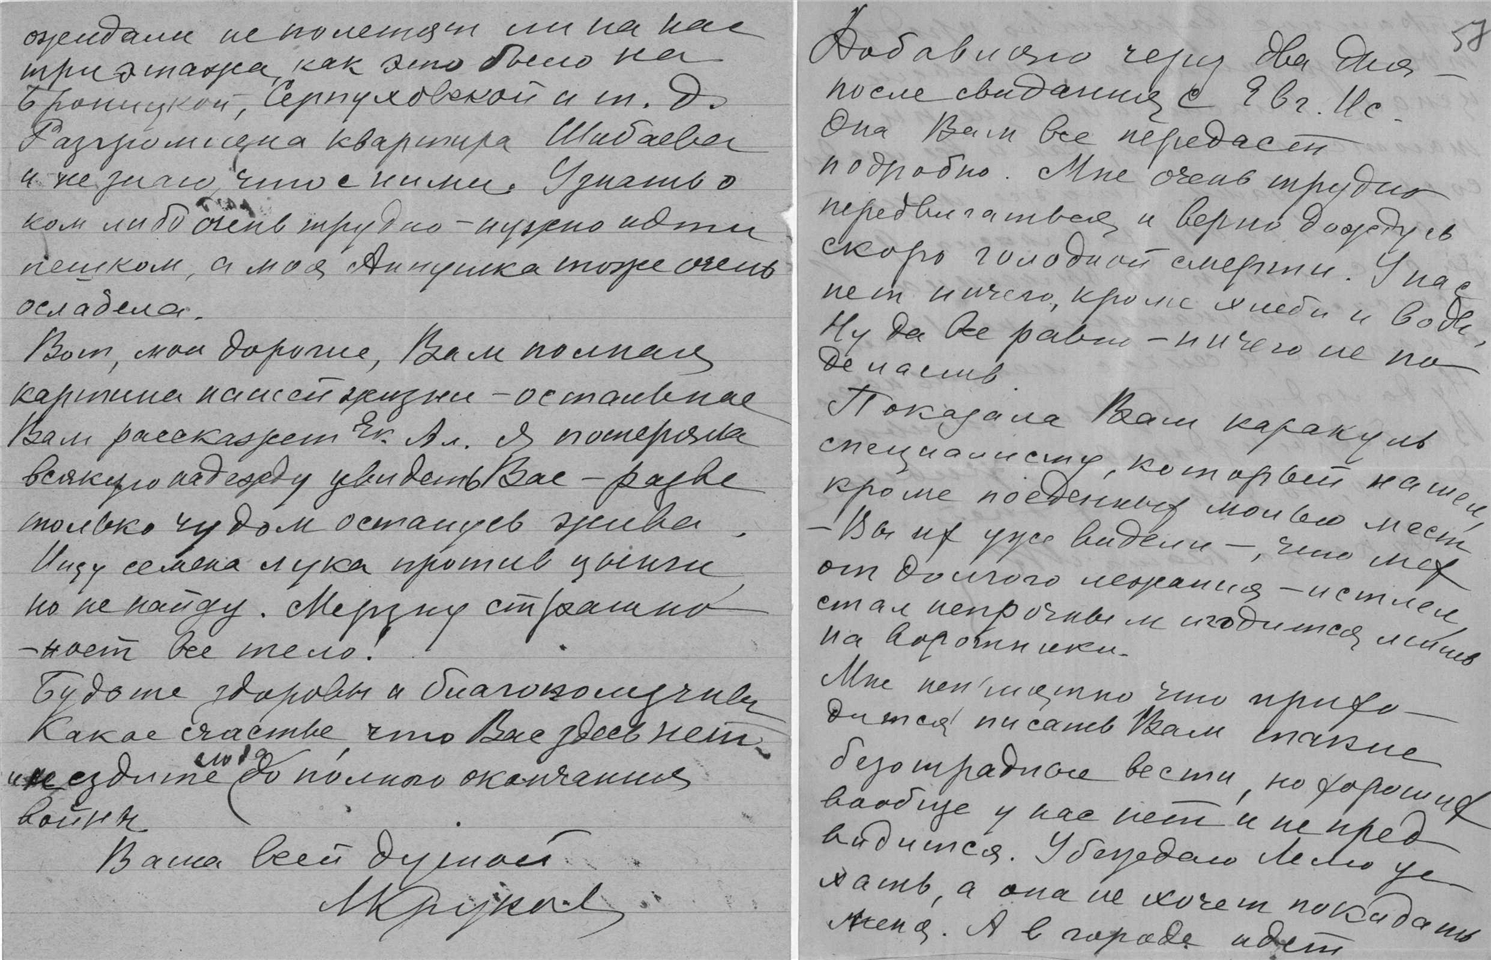 ожидали не полетят ли на нас
три этажа, как это было на
Бронницкой, Серпуховской и т. д.
Разгромлена квартира Шибаевых
и не знаю, что с ними. Узнать о
ком либо очень трудно – нужно идти
пешком, а моя Аннушка тоже очень
ослабела.
Вот, мои дорогие, Вам полная
картина нашей жизни – остальное
Вам расскажет Ек. Ал. Я потеряла
всякую надежду увидеть Вас – разве
только чудом останусь жива.
Ищу семена лука против цынги,
но не найду. Мерзну страшно
– ноет все тело!
Будьте здоровы и благополучны
Какое счастье, что Вас здесь нет –
и не ездите сюда до полного окончания
войны
Ваша всей душой
МКрукова
57
Добавляю через два дня –
после свидания с Евг. Ис.
Она Вам все передаст
подробно. Мне очень трудно
передвигаться и верно дождусь
скоро голодной смерти. У нас
нет ничего, кроме хлеба и воды,
Ну да все равно – ничего не по
делаешь.
Показала Вам каракуль
специалисту, который нашел,
кроме поеденных молью мест
– Вы их уже видели –, что мех
от долгого лежания – истлел,
стал непрочным и годится лишь
на воротники.
Мне неприятно что прихо–
дится писать Вам такие
безотрадные вести, но хороших
вообще у нас нет и не пред
видится. Убеждаю Лелю уе–
хать, а она не хочет покидать
меня. А в городе идет